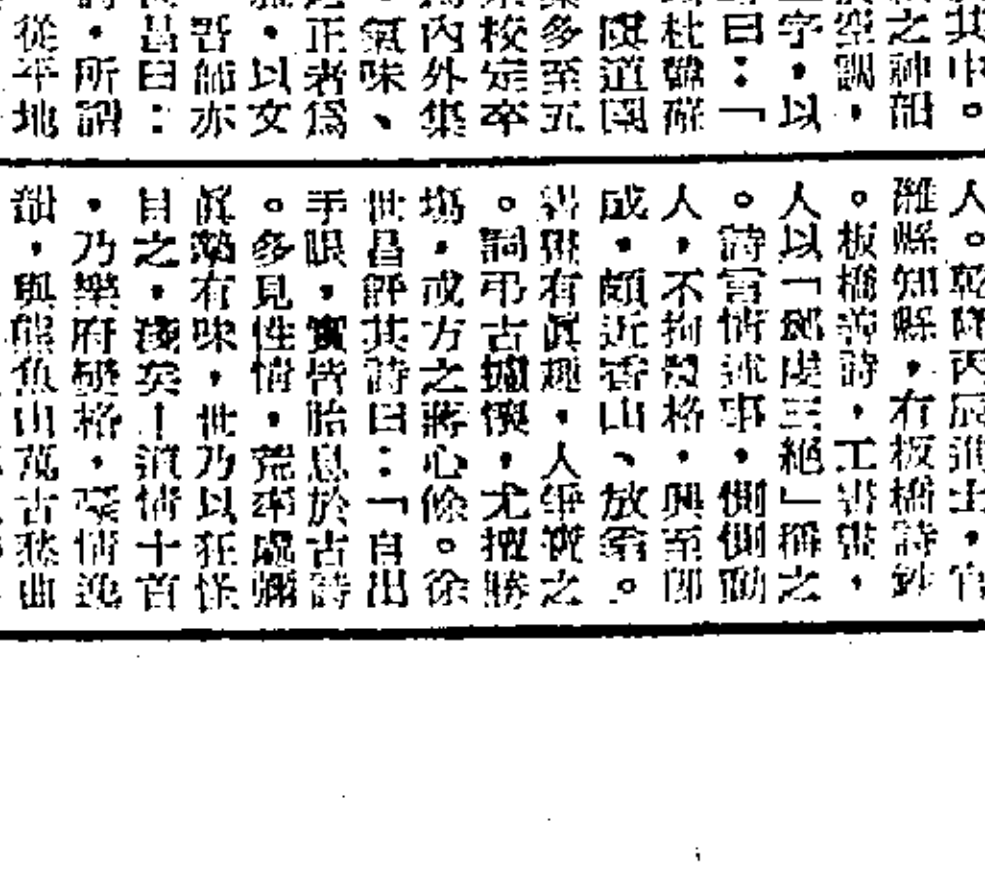 其中。
之神
空調，
字，以
曰：「
杜韓
虞道園
多至五
校定卒
內外集
氣味、
正者爲
，以文
哲師亦
昌曰：
，所謂
從平地
人。乾隆丙辰進士，官
濰縣知縣，有板橋詩鈔
。板橋善詩，工書畫，
人以「鄭虔三絕」稱之
。詩言情述事，惻惻動
人，不拘體格，興至即
成，頗近香山、放翁。
書畫有眞趣，人爭寶之
。詞弔古攄懷，尤擅勝
場，或方之蔣心餘。徐
世昌評其詩曰：「自出
手眼，實皆胎息於古詩
。多見性情，荒率處彌
眞摯有味，世乃以狂怪
目之，淺矣！道情十首
，乃樂府變格，豪情逸
韻，與熊魚山萬古愁曲